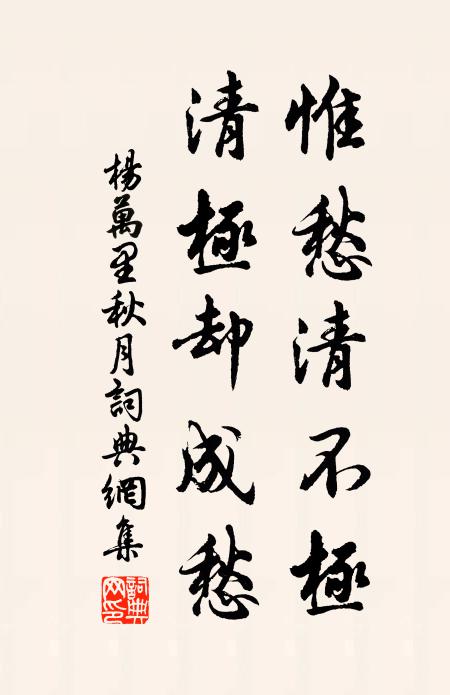 惟愁清不極
清極却成愁
楊萬里秋月詞典網集
詞典网印